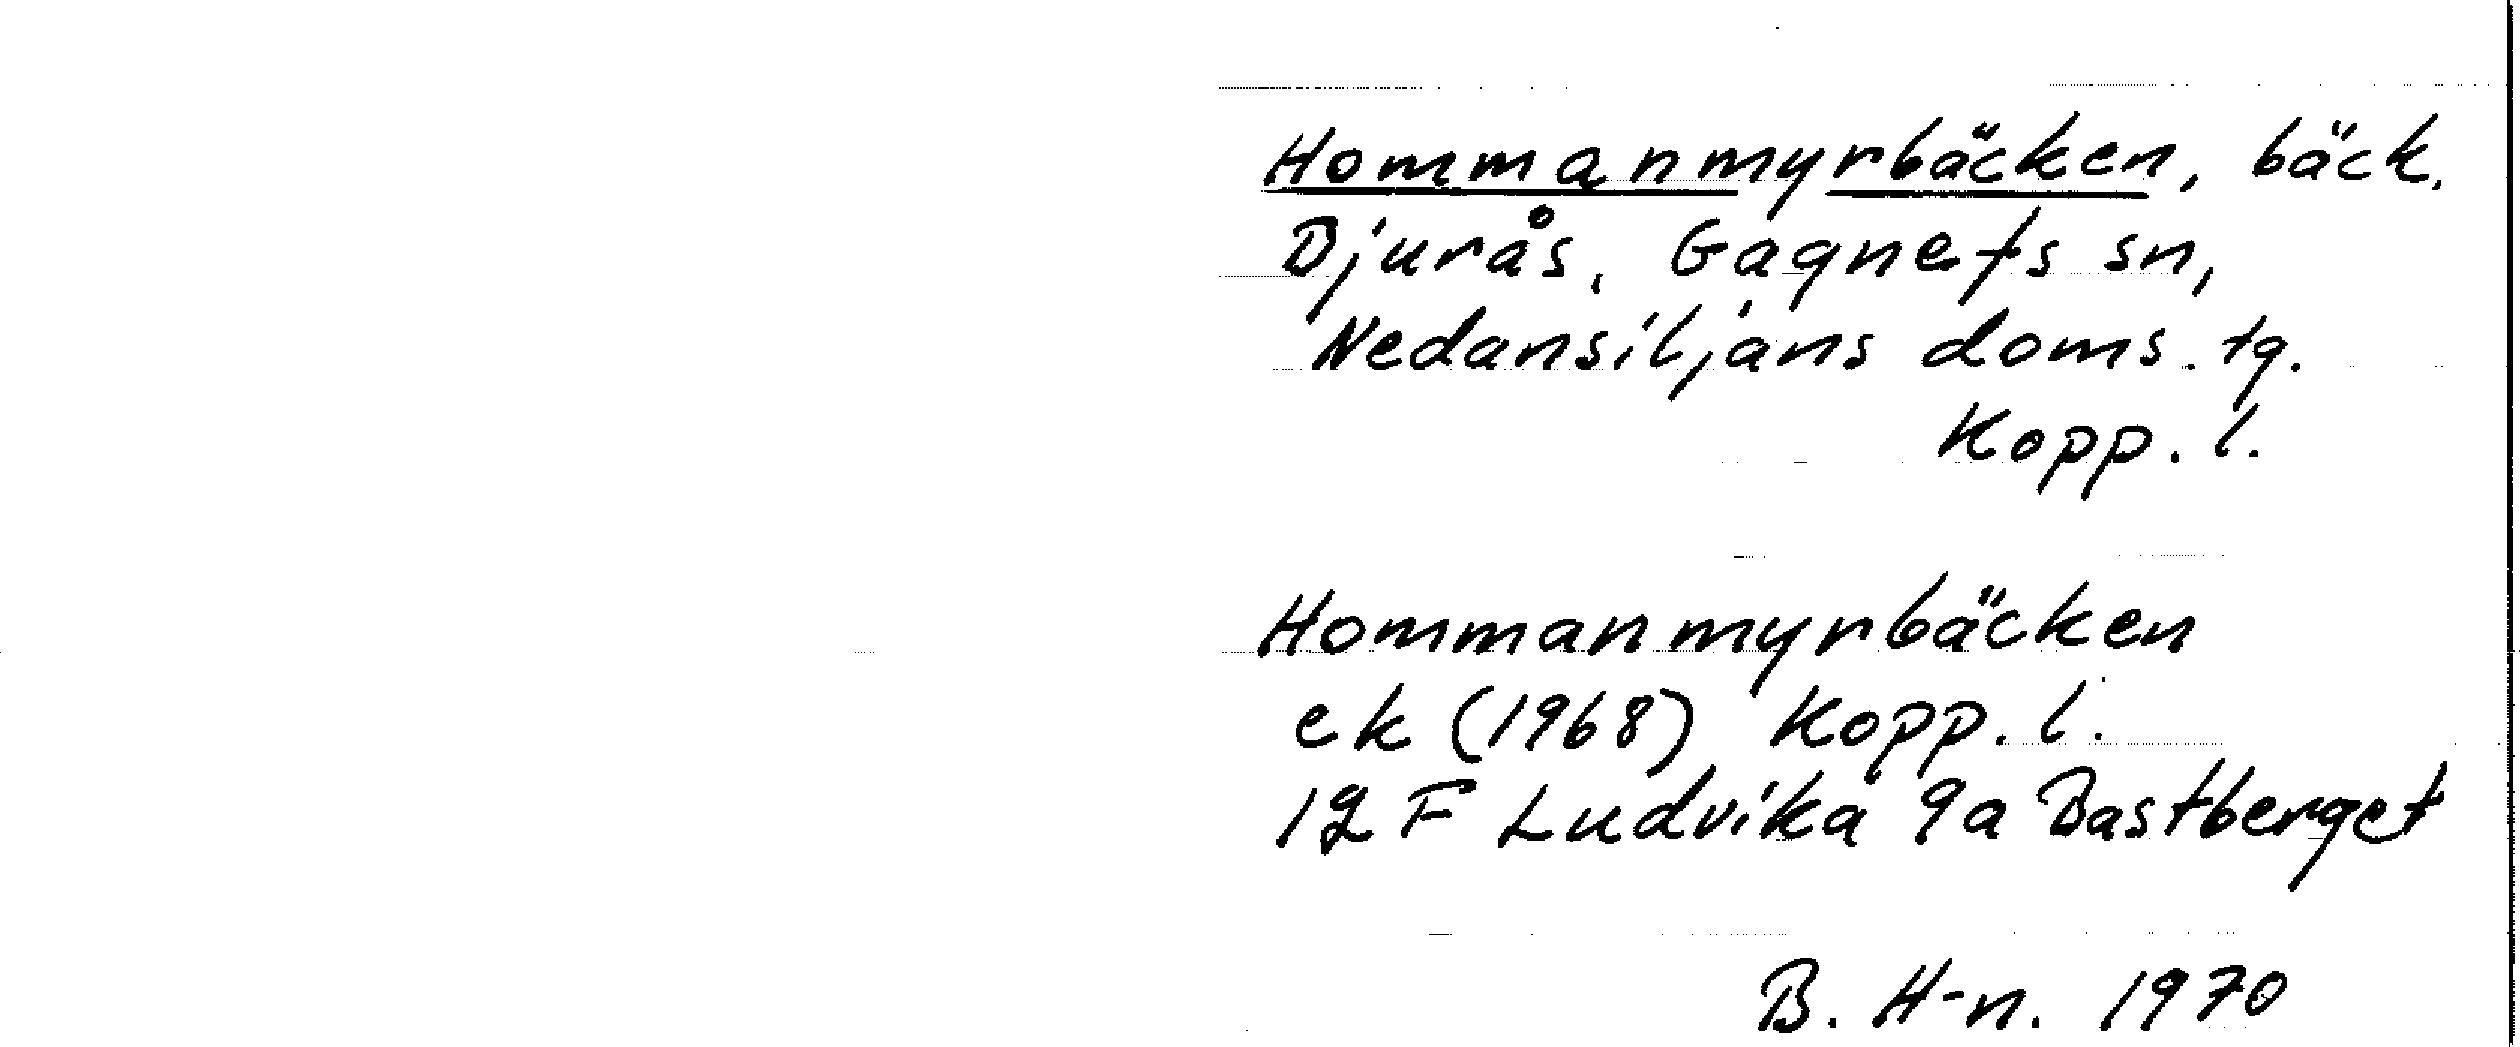 Hommanmyrbäcken, bäck,
Djurås, Gagnefs sn,
Nedansiljans doms. tg.
Kopp. l.
Hommanmyrbäcken
ek (1968) Kopp. l.
12 F Ludvika 9a Bastberget
B. H-n. 1970